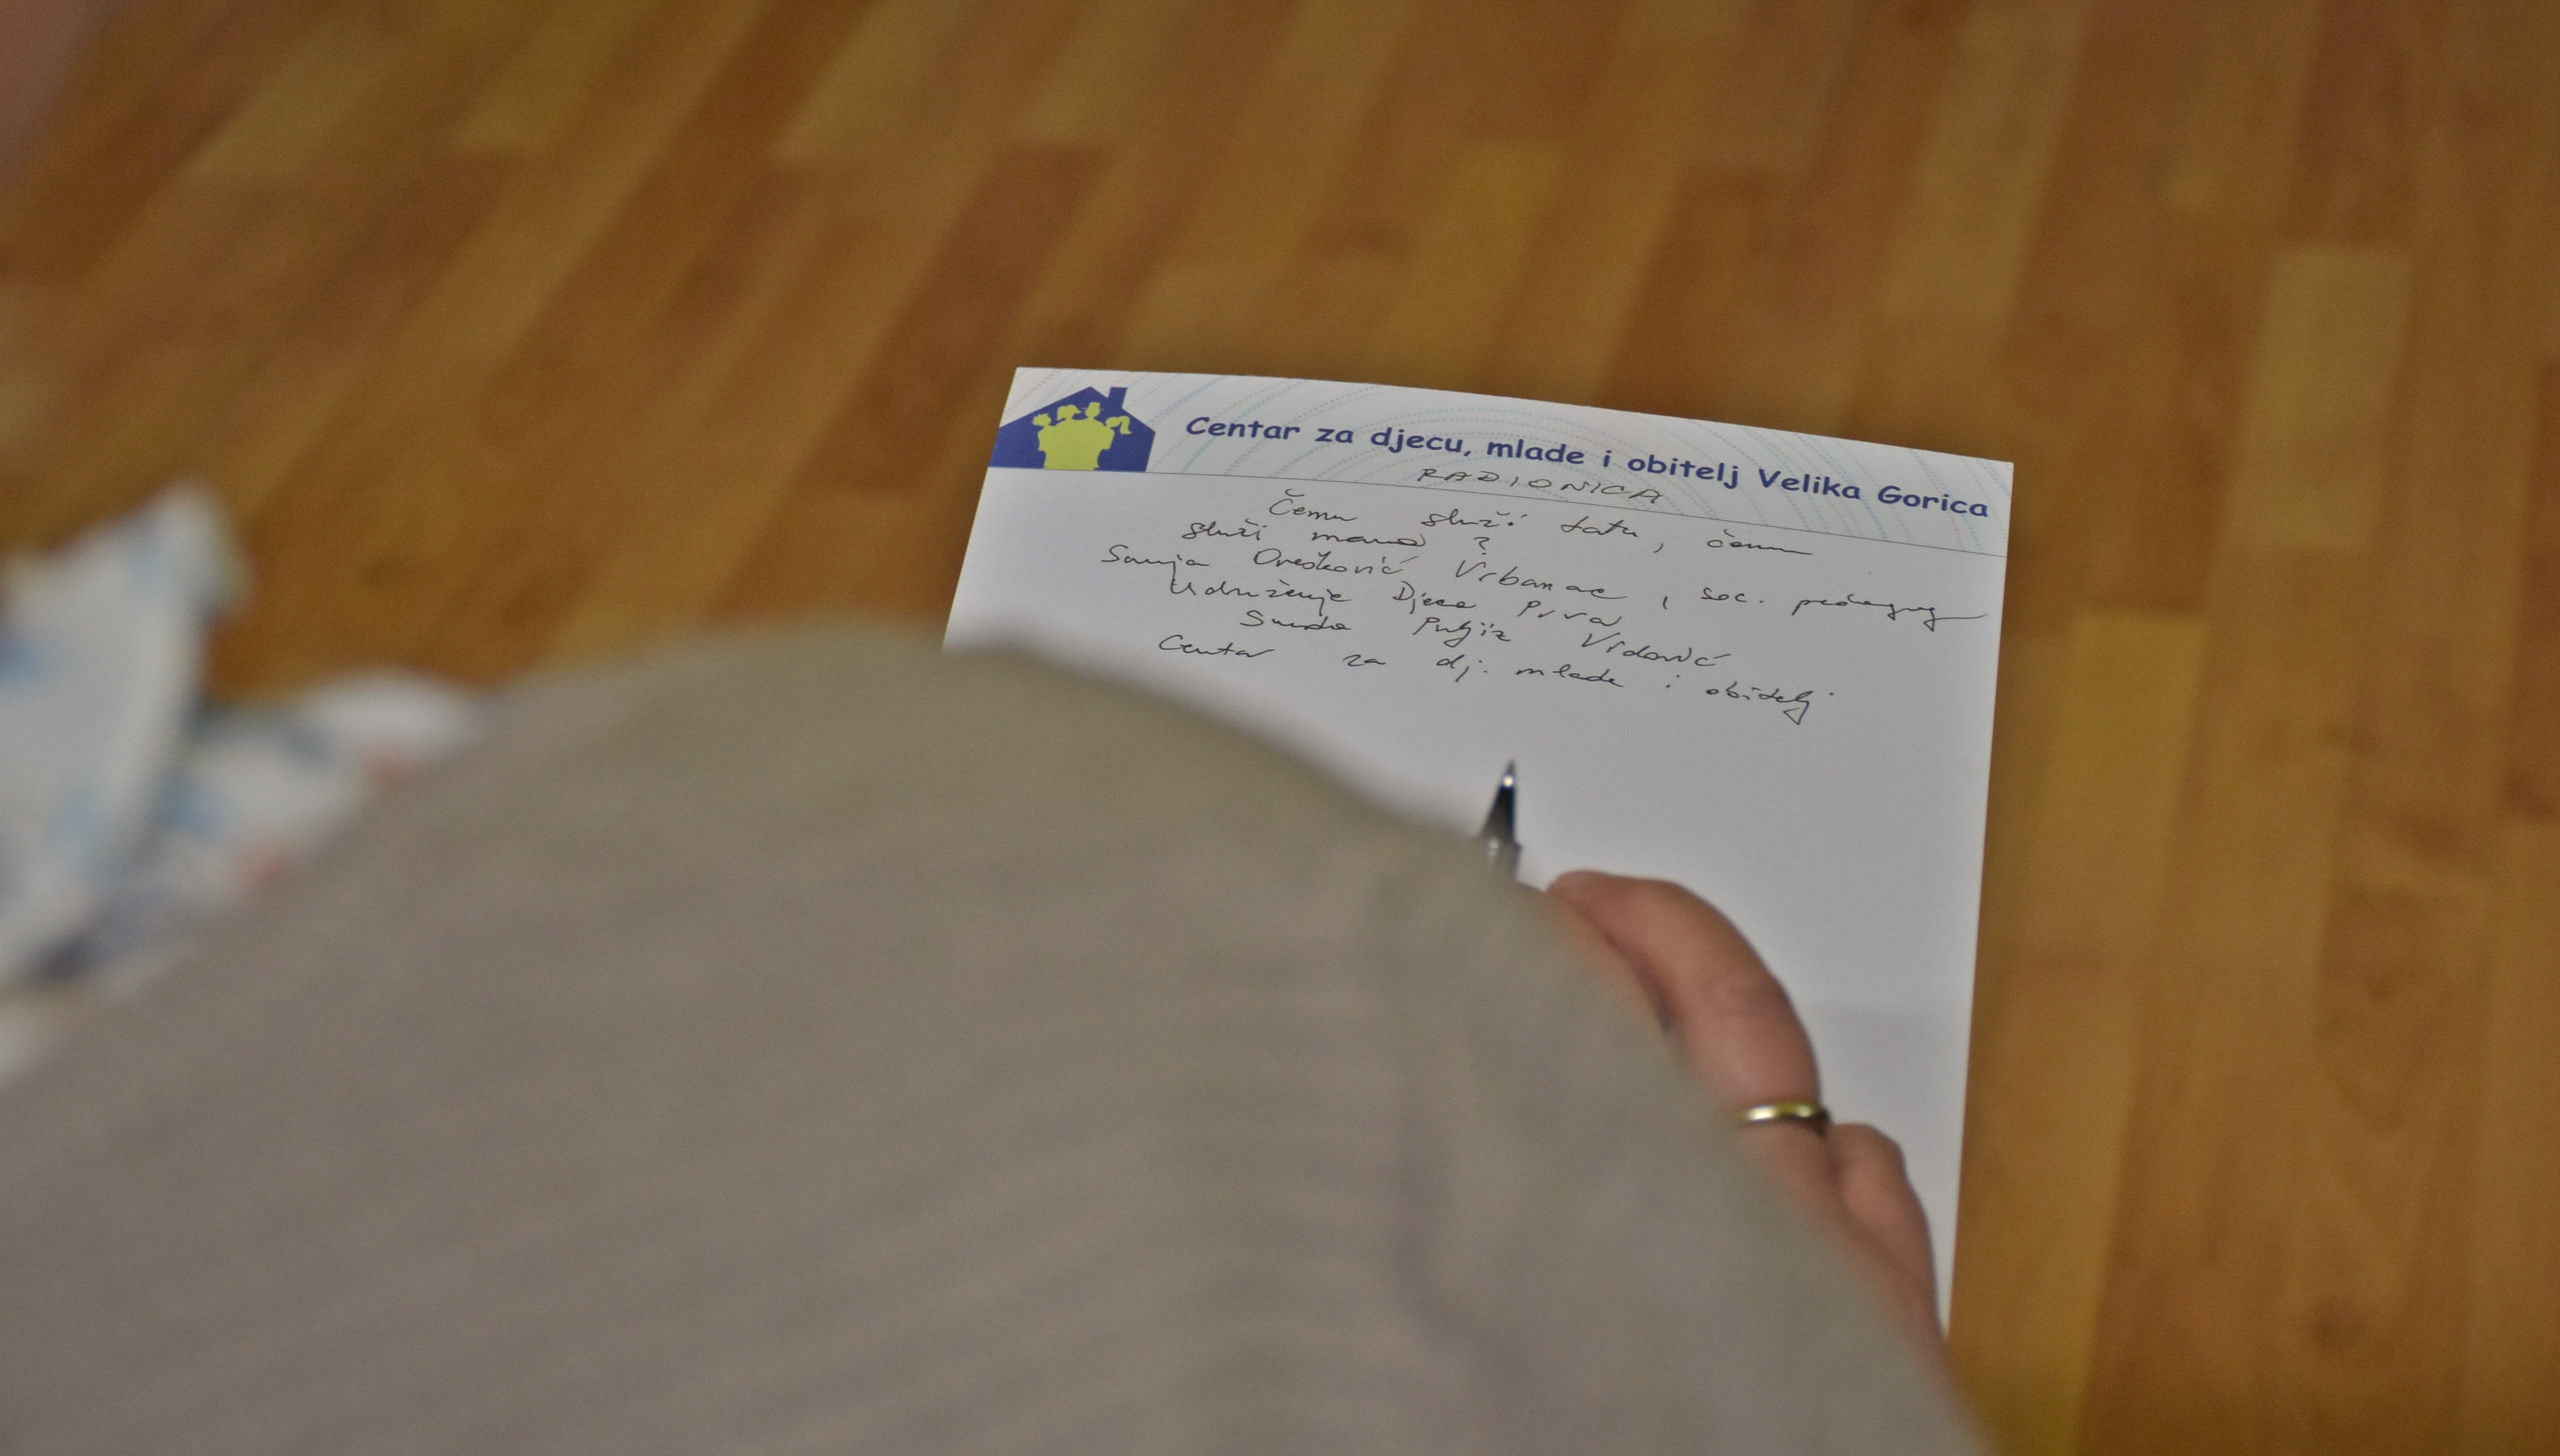 Centar za djecu, mlade i obitelj Velika Gorica
RADIONICA
Čemu služi tata, čemu
služi mama?
Sanja Orešković Vrbanac, soc. pedagog
Udruženje Djeca Prva
Sanda Puljiz Vrdović
Centar za dj. mlade i obitelj